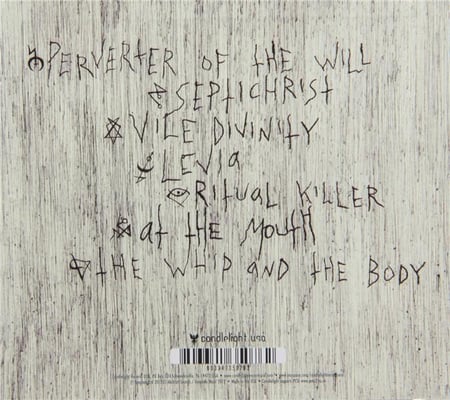 PERVERTER OF THE WILL
SEPTICHRIST
VILE DIVINITY
LEVIA
RITUAL KILLER
at the Mouth
THE WHIP AND THE BODY
candlelight usa